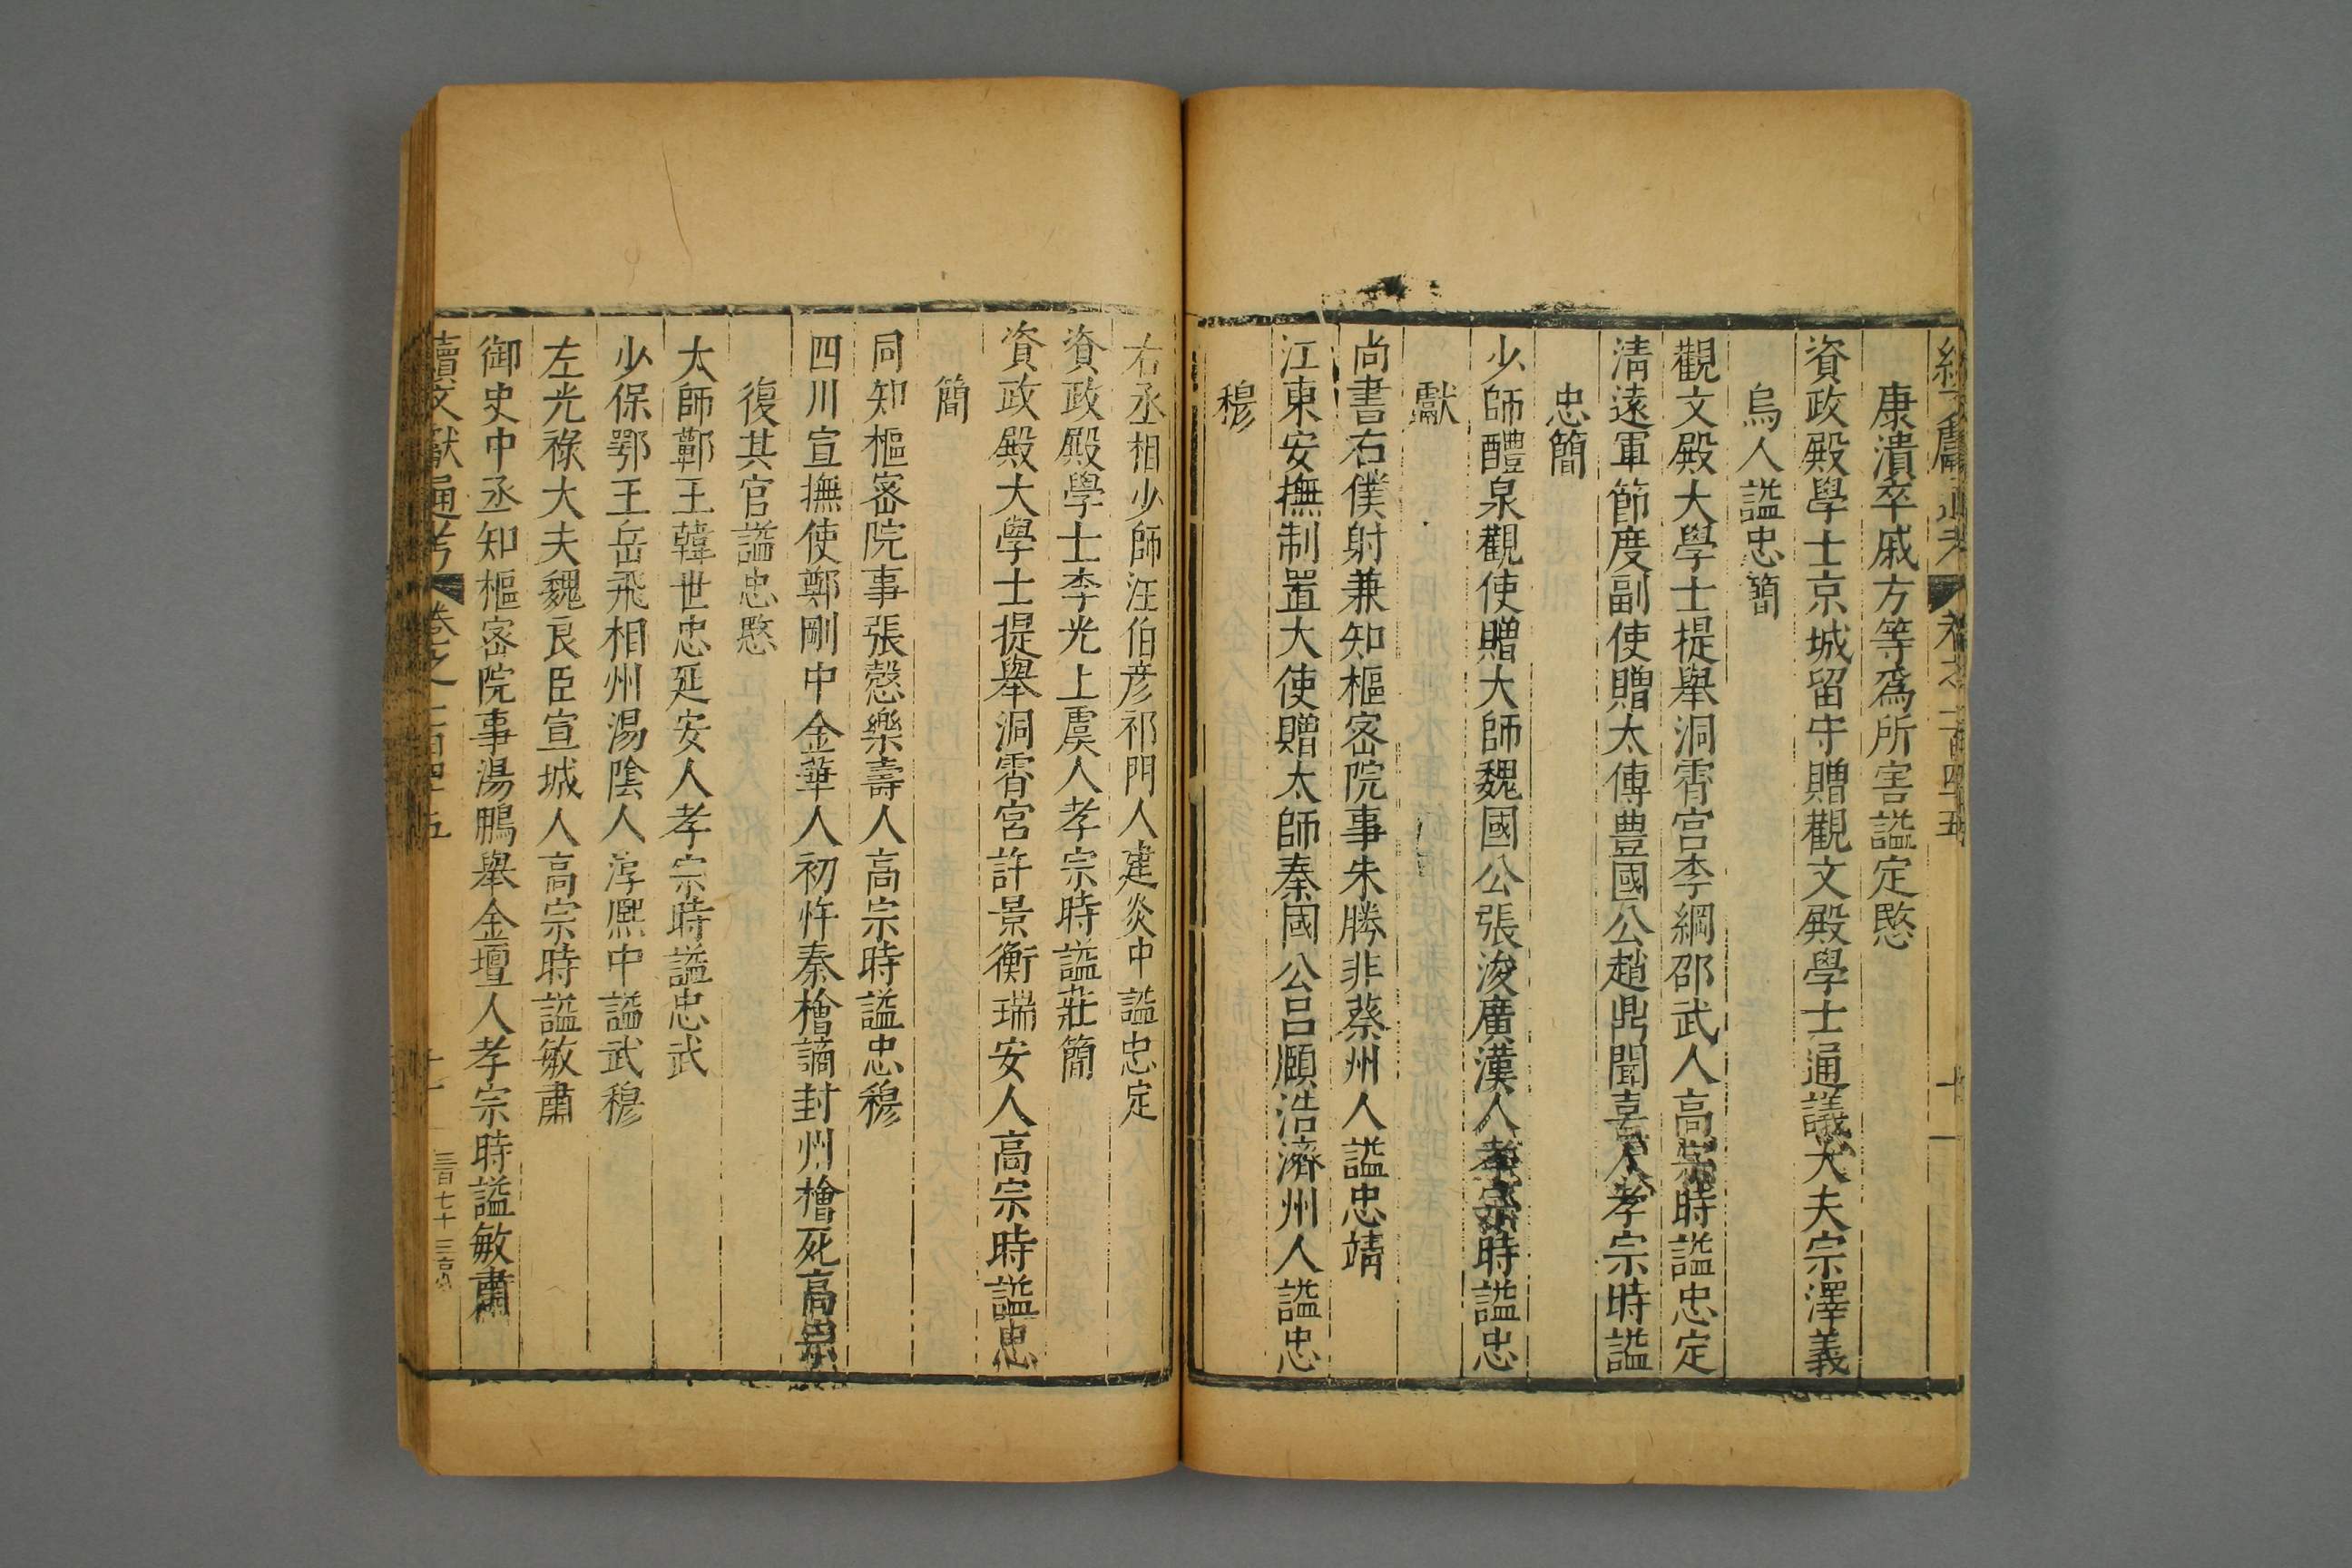 康潰卒戚方等爲所害謚定愍
資政殿學士京城留守贈觀文殿學士通議大夫宗澤義
烏人謚忠簡
觀文殿大學士提舉洞霄宮李綱邵武人高宗時謚忠定
清遠軍節度副使贈太傅豊國公趙鼎聞喜人孝宗時謚
忠簡
少師醴泉觀使贈大師魏國公張浚廣漢人孝宗時謚忠
獻
尚書右僕射兼知樞密院事朱勝非蔡州人謚忠靖
江東安撫制置大使贈太師秦國公呂頤浩濟州人謚忠
穆
右丞相少師汪伯彦祁門人建炎中謚忠定
資政殿學士李光上虞人孝宗時謚莊簡
資政殿大學士提舉洞霄宮許景衡瑞安人高宗時謚忠
簡
同知樞密院事張慤樂壽人高宗時謚忠穆
四川宣撫使鄭剛中金華人初忤秦檜謫封州檜死高宗
復其官謚忠愍
太師鄿王韓世忠延安人孝宗時謚忠武
少保鄂王岳飛相州湯陰人淳熙中謚武穆
左光祿大夫魏良臣宣城人高宗時謚敏肅
御史中丞知樞密院事湯鵬舉金壇人孝宗時謚敏肅
續文獻通考 卷之一百四十五